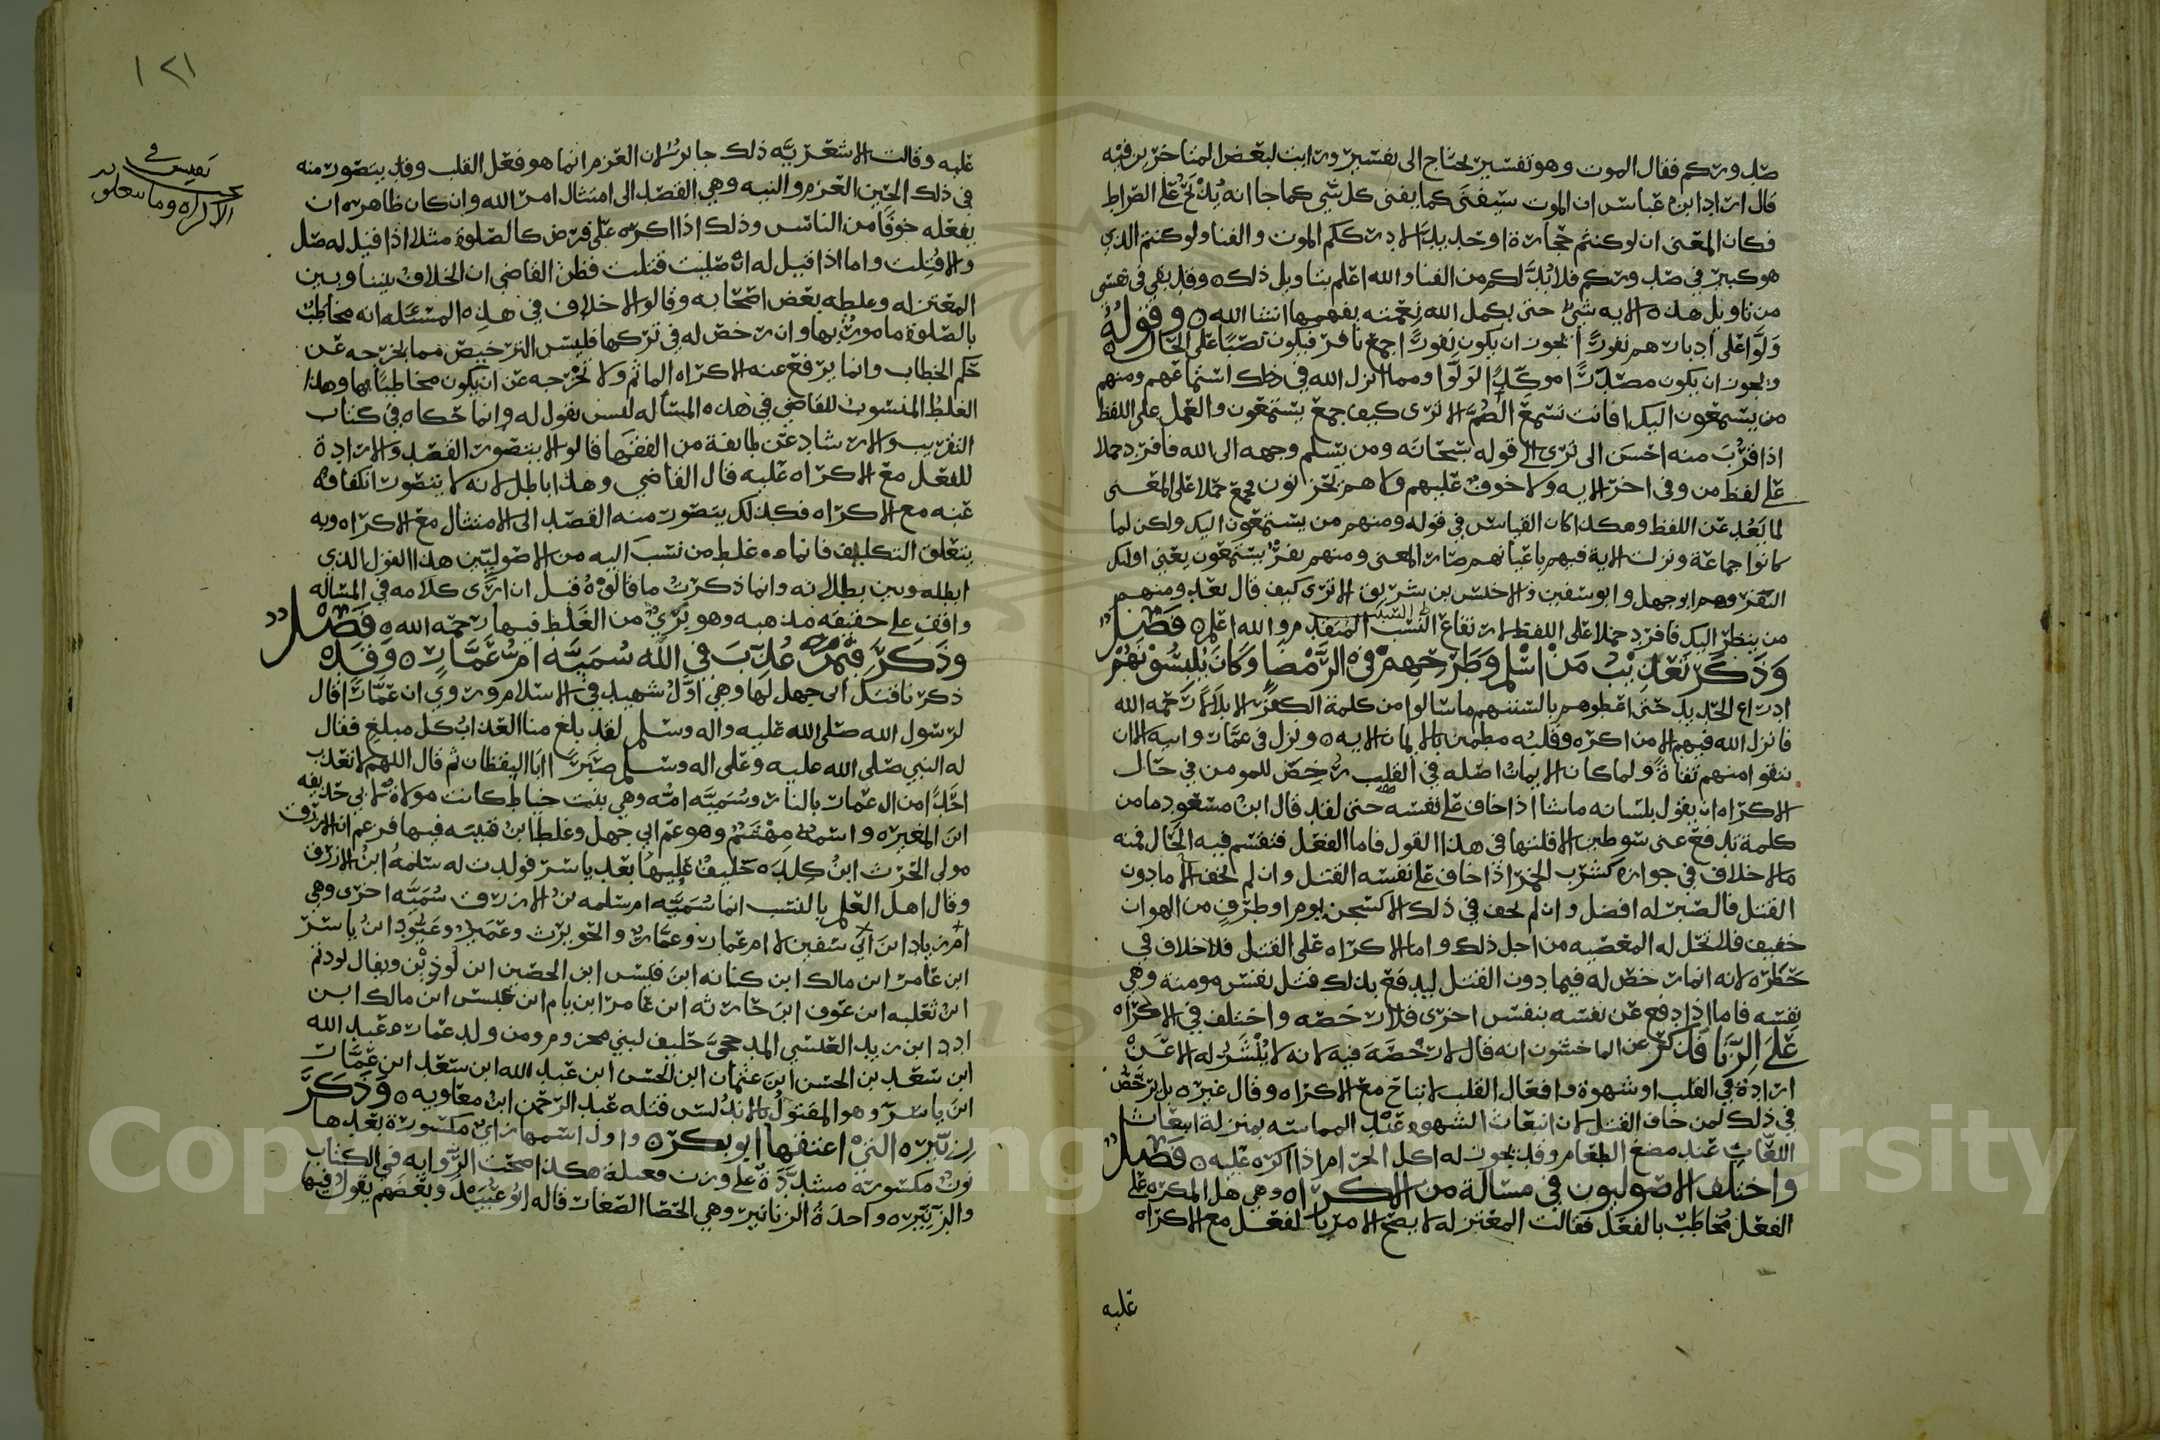 صدوركم فقال الموت وهو تفسير يحتاج الى تفسير ورايت لبعض المتاخرين فيه
قال اراد ابن عباس ان الموت سيفنى كما يفنى كل شي كما جا انه يذبح على الصراط
فكان المعنى ان لو كنتم حجارة او حديدا لادرككم الموت والفنا ولو كنتم الذي
هو كبير في صدوركم فلا بد لكم من الفنا والله اعلم بتاويل ذلك ٥ وقد بقي في نفسي
من تاويل هذه الايه شي حتى يكمل الله نعمته بفهمها انشا الله ٥ وقوله
ولوا على ادبارهم نفورا يجوز ان يكون نفورا جمع نافر فيكون نصبا على الحال
ويجوز ان يكون مصدرا موكدا لولوا ومما انزل الله في ذلك استماعهم ومنهم
من يستمعون اليك افانت تسمع الصم الا ترى كيف جمع يستمعون والحمل على اللفظ
اذا قرب منه احسن الى ترى الى قوله سبحانه ومن يسلم وجهه الى الله فافرد حملا
على لفظ من وفي اخر الايه ولا خوف عليهم ولا هم يحزنون فجمع حملا على المعنى
لما بعد عن اللفظ وهكذا كان القياس في قوله ومنهم من يستمعون اليك ولكن لما
كانوا جماعة ونزلت الاية فيهم باعيانهم صار المعنى ومنهم نفر يستمعون يعني اوليك
النفر وهم ابو جهل وابو سفين والاخنس بن شريق الا ترى كيف قال بعد ومنهم
من ينظر اليك فافرد حملا على اللفظ لارتفاع السبب المتقدم والله اعلم ٥ فصل
وذكر تعذيب من اسلم وطرحهم في الرمضا وكان يلبسونهم
ادراع الحديد حتى اعطوهم بالسنتهم ما سالوا من كلمة الكفر الا بلالا رحمه الله
فانزل الله فيهم الا من اكره وقلبه مطمئن بالايمان الايه ٥ ونزل في عمار وابيه الا ان
تتقوا منهم تقاة ولما كان الايمان اصله في القلب رخص للمومن في حال
الاكراه ان يقول بلسانه ما شا اذا خاف على نفسه حتى لقد قال ابن مسعود ما من
كلمة تدفع عني سوطين الا قلتها في هذا القول فاما الفعل فتنقسم فيه الحال فمنه
ما لا خلاف في جوازه كشرب الخمر اذا خاف على نفسه القتل وان لم يخف الا ما دون
القتل فالصبر له افضل وان لم يخف في ذلك الا كسجن يوم او طرف من الهوان
خفيف فلا تحل له المعصيه من اجل ذلك واما الاكراه على القتل فلا خلاف في
حظره لانه انما رخص له فيما دون القتل ليدفع بذلك قتل نفس مومنة وهي
نفسه فاما اذا دفع عن نفسه بنفس اخرى فلا رخصه واختلف في الاكراه
على الزنا فذكر عن الماجشون انه قال لا رخصة فيه لانه لا ينتشر له الا عن
ارادة في القلب او شهوة وافعال القلب لا تباح مع الاكراه وقال غيره بل يرخص
في ذلك لمن خاف القتل لان انبعاث الشهوة عند المماسه بمنزلة انبعاث
اللعاب عند مضغ الطعام وقد يجوز له اكل الحرام اذا اكره عليه ٥ فصل
واختلف الاصوليون في مسالة من الاكراه وهي هل المكره على
الفعل مخاطب بالفعل فقالت المعتزله لا يصح الامر بالفعل مع الاكراه
عليه
١٢١
عليه وقالت الاشعريه ذلك جايز لان العزم انما هو فعل القلب وقد يتصور منه
في ذلك الحين العزم والنيه وهي القصد الى امتثال امر الله وان كان ظاهره ان
يفعله خوفا من الناس وذلك اذا اكره على فرض كالصلوة مثلا اذا قيل له صل
والا قتلت واما اذا قيل له ان صليت قتلت فظن القاضي ان الخلاف بيننا وبين
المعتزله وغلطه بعض اصحابه وقالوا لا خلاف في هذه المسئله انه مخاطب
بالصلوة مامور بها وان رخص له في تركها فليس الترخيص مما يخرجه عن
حكم الخطاب وانما يرفع عنه الاكراه الماثم ولا يخرجه عن ان يكون مخاطبا بها وهذا
الغلط المنسوب للقاضي في هذه المساله ليس بقول له وانما حكاه في كتاب
التقريب والارشاد عن طايفة من الفقها قالوا لا يتصور القصد والارادة
للفعل مع الاكراه عليه قال القاضي وهذا باطل لانه لا يتصور انكفافه
عنه مع الاكراه فكذلك يتصور منه القصد الى الامتثال مع الاكراه وبه
يتعلق التكليف فانما غلط من نسب اليه من الاصوليين هذا القول الذي
ابطله وبين بطلانه وانما ذكرت ما قالوه قبل ان ارى كلامه في المساله
واقف على حقيقه مذهبه وهو بري من الغلط فيها رحمه الله ٥ فصل
وذكر فيمن عذب في الله سميه ام عمار ٥ وقد
ذكرنا قتل ابي جهل لها وهي اول شهيد في الاسلام وروي ان عمارا قال
لرسول الله صلى الله عليه واله وسلم لقد بلغ منا العذاب كل مبلغ فقال
له النبي صلى الله عليه وعلى اله وسلم صبرا ابا اليقظان ثم قال اللهم لا تعذب
احدا من ال عمار بالنار وسميه امه وهي بنت خياط كانت مولاة لابي حذيفه
ابن المغيره واسمه مهشم وهو عم ابي جهل وغلط ابن قتيبه فيها فزعم ان الازرق
مولى الحرث ابن كلده خليف عليها بعد ياسر فولدت له سلمه ابن الازرق
وقال اهل العلم بالنسب انما سميه ام سلمه بن الازرق سميه اخرى وهي
ام زياد ابن ابي سفين لا ام عمار وعمار والحويرث وعبود ابن ياسر
ابن عامر ابن مالك ابن كنانه ابن قيس ابن الحصين ابن لوذين ويقال لوذيم
ابن ثعلبه ابن عوف ابن حارثه ابن عامر ابن يام ابن عنس ابن مالك ابن
ادد ابن زيد العنسي المذحجي حليف لبني مخزوم ومن ولد عمار عبد الله
ابن سعد بن الحسن ابن عثمان ابن الحسن ابن عبد الله ابن سعد ابن عمار
ابن ياسر وهو المقتول بالاندلس قتله عبد الرحمن ابن معاويه ٥ وذكر
زنيره التي اعتقها ابو بكر ٥ واول اسمها زاي مكسورة بعدها
نون مكسورة مشددة على وزن فعيلة هكذا صحت الروايه في الكتاب
والزنيره واحدة الزنانير وهي الحصا الصغار قاله ابو عبيده وبعضهم يقول فيها